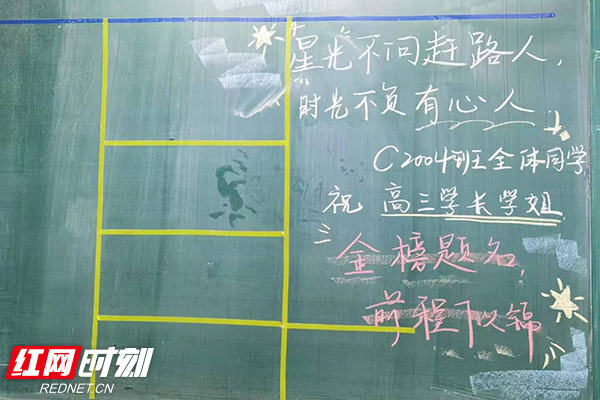 星光不问赶路人,
时光不负有心人
C2004班全体同学
祝 高三学长学姐
金榜题名,
前程似锦
红网时刻
REDNET.CN